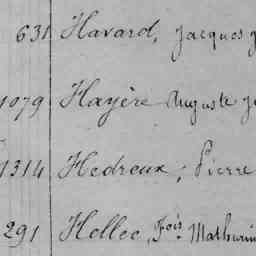 631 Havard, Jacques
1079 Hayère Auguste
1314 Hedreux, Pierre
291 Hellec, Fois Mathurin